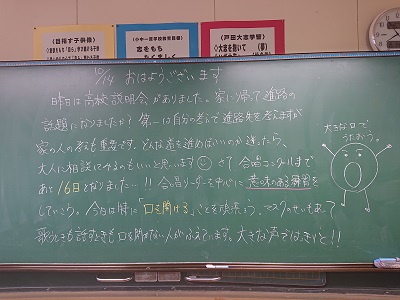 《目指す子供像》
小中一貫学校教育目標
志をもち
たくましく
《戸田大志学習》
大志を抱いて
10/14 おはようございます
昨日は高校説明会がありました。家に帰って進路の
話題になりましたか？第一は自分の考えで進路先を考えますが
家の人の考えも重要です。どんな道を進めばいいのか迷ったら、
大人に相談してみるのもいいと思います さて 合唱コンクールまで
あと16日となりました…!! 合唱リーダーを中心に意味のある練習を
していこう。今日は特に「口を開ける」ことを頑張ろう。マスクのせいもあって
歌うときも話すときも口を開けない人がふえています。大きな声ではきはきと!!
大きな口で
うたおう。